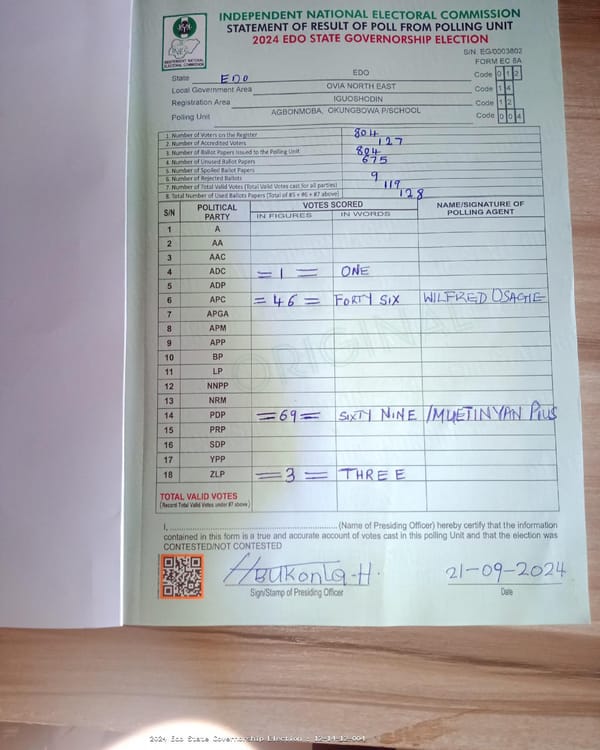 INDEPENDENT NATIONAL ELECTORAL COMMISSION
STATEMENT OF RESULT OF POLL FROM POLLING UNIT
2024 EDO STATE GOVERNORSHIP ELECTION
INDEPENDENT NATIONAL ELECTORAL COMMISSION
S/N. EG/0003802
FORM EC 8A
State EDO EDO Code 0 1 2
Local Government Area OVIA NORTH EAST Code 1 4
Registration Area IGUOSHODIN Code 1 2
Polling Unit AGBONMOBA, OKUNGBOWA P/SCHOOL Code 0 0 4
1. Number of Voters on the Register 804
2. Number of Accredited Voters 127
3. Number of Ballot Papers Issued to the Polling Unit 804
4. Number of Unused Ballot Papers 675
5. Number of Spoiled Ballot Papers
6. Number of Rejected Ballots 9
7. Number of Total Valid Votes (Total Valid Votes cast for all parties) 119
8. Total Number of Used Ballots Papers (Total of #5 + #6 + #7 above) 128
S/N POLITICAL PARTY VOTES SCORED NAME/SIGNATURE OF POLLING AGENT
IN FIGURES IN WORDS
1 A
2 AA
3 AAC
4 ADC =1= ONE
5 ADP
6 APC =46= FORTY SIX WILFRED OSAGIE
7 APGA
8 APM
9 APP
10 BP
11 LP
12 NNPP
13 NRM
14 PDP =69= SIXTY NINE PIUS
15 PRP
16 SDP
17 YPP
18 ZLP =3= THREE
ORIGINAL
TOTAL VALID VOTES
(Record Total Valid Votes under #7 above)
I, (Name of Presiding Officer) hereby certify that the information
contained in this form is a true and accurate account of votes cast in this polling Unit and that the election was
CONTESTED/NOT CONTESTED
21-09-2024
Sign/Stamp of Presiding Officer Date
2024 Edo State Governorship Election - 12-14-12-004